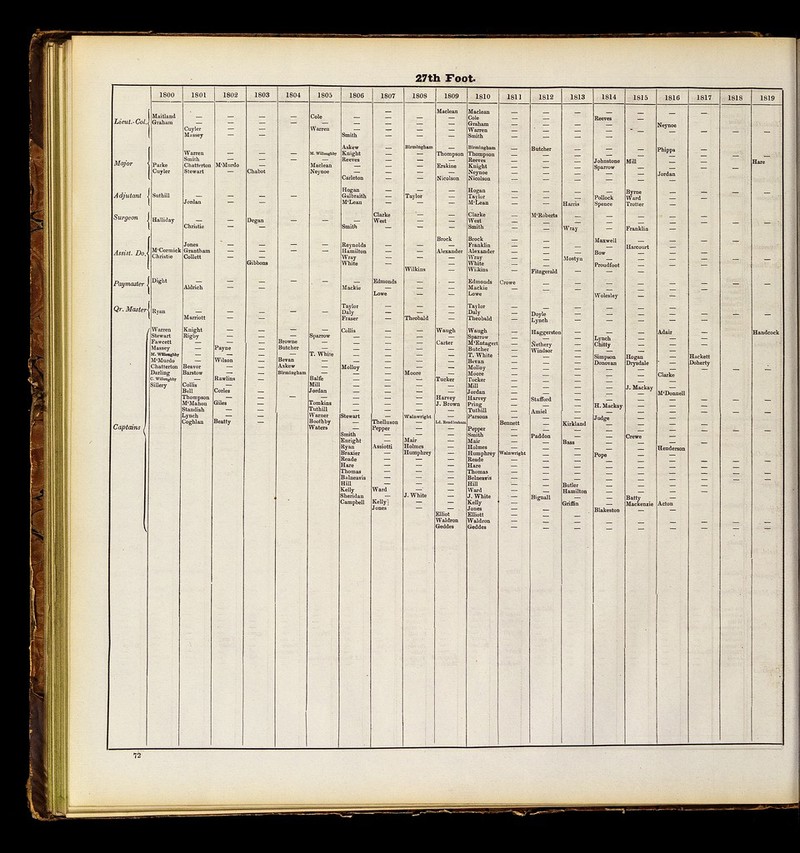 27th Foot.
1800 1801 1802 1803 1804 1805 1806 1807 1808 1809 1810 1811 1812 1813 1814 1815 1816 1817 1818 1819
Lieut.-Col.
Maitland — — — — Cole — — — Maclean Maclean — — — — — — —
Graham — — — — — — — — — Cole — — — Reeves — — —
Graham — — — — — Neynoe
Cuyler — — — Warren — — — — Warren
Massey — — Smith — — — Smith
Major
Askew — Birmingham — Birmingham — Butcher — — — Phipps
Warren — — — M. Willoughby Knight — — Thompson Thompson
Smith — — — — Reeves — — — Reeves — — — Johnstone Mill — — — Hare
Parke Chatterton M'Murdo — — Maclean — — — Erskine Knight — — — Sparrow
Cuyler Stewart — Chabot — Neynoe — — — — Neynoe — — — — — Jordan
Carleton — — Nicolson Nicolson
Adjutant
Hogan — — — Hogan — — — — Byrne
Suthill — — — — — Galbraith — Taylor — Taylor — — — Pollock Ward
Jordan — — — — M'Lean — — — M'Lean — — Harris Spence Trotter
Surgeon
Clarke — — Clarke — M'Roberts
Halliday — — Degan — — — West — — West
Christie — — — — Smith — — — Smith — — Wray — Franklin
Assist. Do.
Brock Brock — — — Maxwell
Jones — — — — Reynolds — — — Franklin — — — — Harcourt
M'Cormick Grantham — — — — Hamilton — — Alexander Alexander — — — Bow
Christie Collett — — — — Wray — — — Wray — — Mostyn —
Gibbons — — White — — — White — — — Proudfoot
Wilkins — Wilkins — Fitzgerald
Paymaster
Dight — — — — — — Edmonds — — Edmonds Crowe
Aldrich — — — — Mackie — — — Mackie
Lowe — — Lowe — — — Wolesley
Qr. Master
Taylor — — — Taylor
Ryan — — — — — Daly — — — Daly — Doyle
Marriott — — — — Fraser — Theobald — Theobald — Lynch
Captains
Warren Knight — — — — Collis — — Waugh Waugh — Haggerston — — — Adair — — Handcock
Stewart Rigby — — — Sparrow — — — — Sparrow — — — Lynch
Fawcett — — — Browne — — — — Carter M'Entagert — Nethery — Chitty
Massey — Payne — Butcher — — — — — Butcher — Windsor
M. Willoughby — — — — T. White — — — — T. White — — — Simpson Hogan — Hackett
M'Murdo — Wilson — Bevan — — — — — Bevan — — — Donovan Drysdale — Doherty
Chatterton Beavor — — Askew — Molloy — — — Molloy
Darling Barstow — — Birmingham — — — Moore — Moore — — — — — Clarke
C. Willoughby — Hawlins — — Balfe — — — Tucker Tucker
Sillery Collis — — — Mill — — — — Mill — — — — J. Mackay
Bell Cooles — — Jordan — — — — Jordan — — — — — M'Donnell
Thompson — — — — — — — Harvey Harvey — Stafford
M'Mahon Giles — — Tomkins — — — J. Brown Pring — — — H. Mackay
Standish — — — Tuthill — — — — Tuthill — Amiel
Lynch — — — Warner Stewart — Wainwright — Parsons — — — Judge
Coghlan Beatty — — Boothby — Thelluson — — Bennett — Kirkland
Waters — Pepper — — Pepper
Smith — — — Smith — Paddon — — Crewe
Enright — Mair — Mair — — Bass
Hynn Assiotti Holmes — Holmes — — — — — Henderson
Brazier — Humphrey — Humphrey Wainwright — — Pope
Reade — — — Reade
Hare — — — Hare
Thomas — — — Thomas
Balneavis — — — Balneavis
Hill — — — Hill — — Butler
Kelly Ward — — Ward — — Hamilton
Sheridan — J. White — J. White — Bignall — — Batty
Campbell Kelly — — Kelly — — Griffin — Mackenzie Acton
Jones — — Jones — — — Blakeston
Elliot Elliott
Waldron Waldron
Geddes Geddes
72